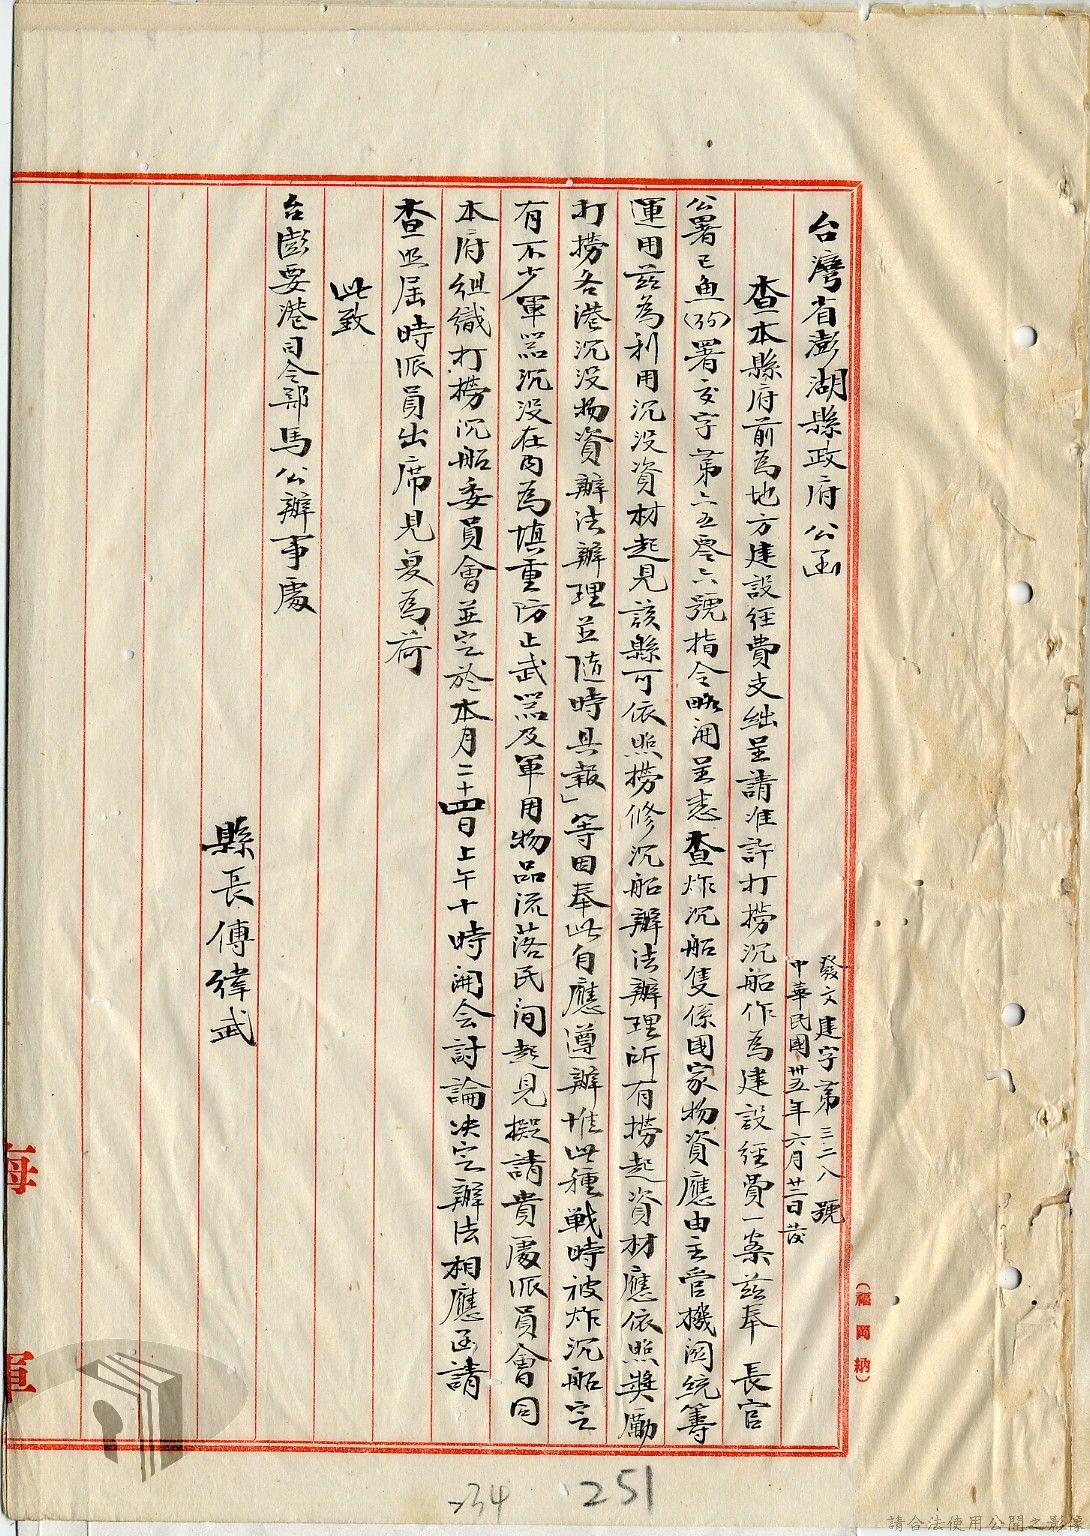 台灣省澎湖縣政府公函
發文建字第三二八號
中華民國卅五年六月廿二日發
查本縣府前為地方建設經費支絀呈請准許打撈沉船作為建設經費一案茲奉 長官
公署已魚(35)署交字第六五零六號指令略開呈悉查炸沉船隻係國家物資應由主管機関統籌
運用茲為利用沉没資材起見該縣可依照撈修沉船辦法辦理所有撈起資材應依照獎勵
打撈各港沉没物資辦法辦理並隨時具報」等因奉此自應遵辦惟此種戰時被炸沉船定
有不少軍器沉没在內為慎重防止武器及軍用物品流落民间起見擬請貴處派員會同
本府組織打撈沉船委員會並定於本月二十四日上午十時開会討論決定辦法相應函請
查照屆時派員出席見复為荷
此致
台澎要港司令部馬公辦事處
縣長傅緯武
海 軍
(福岡納)
251
234
請合法使用公開之影像